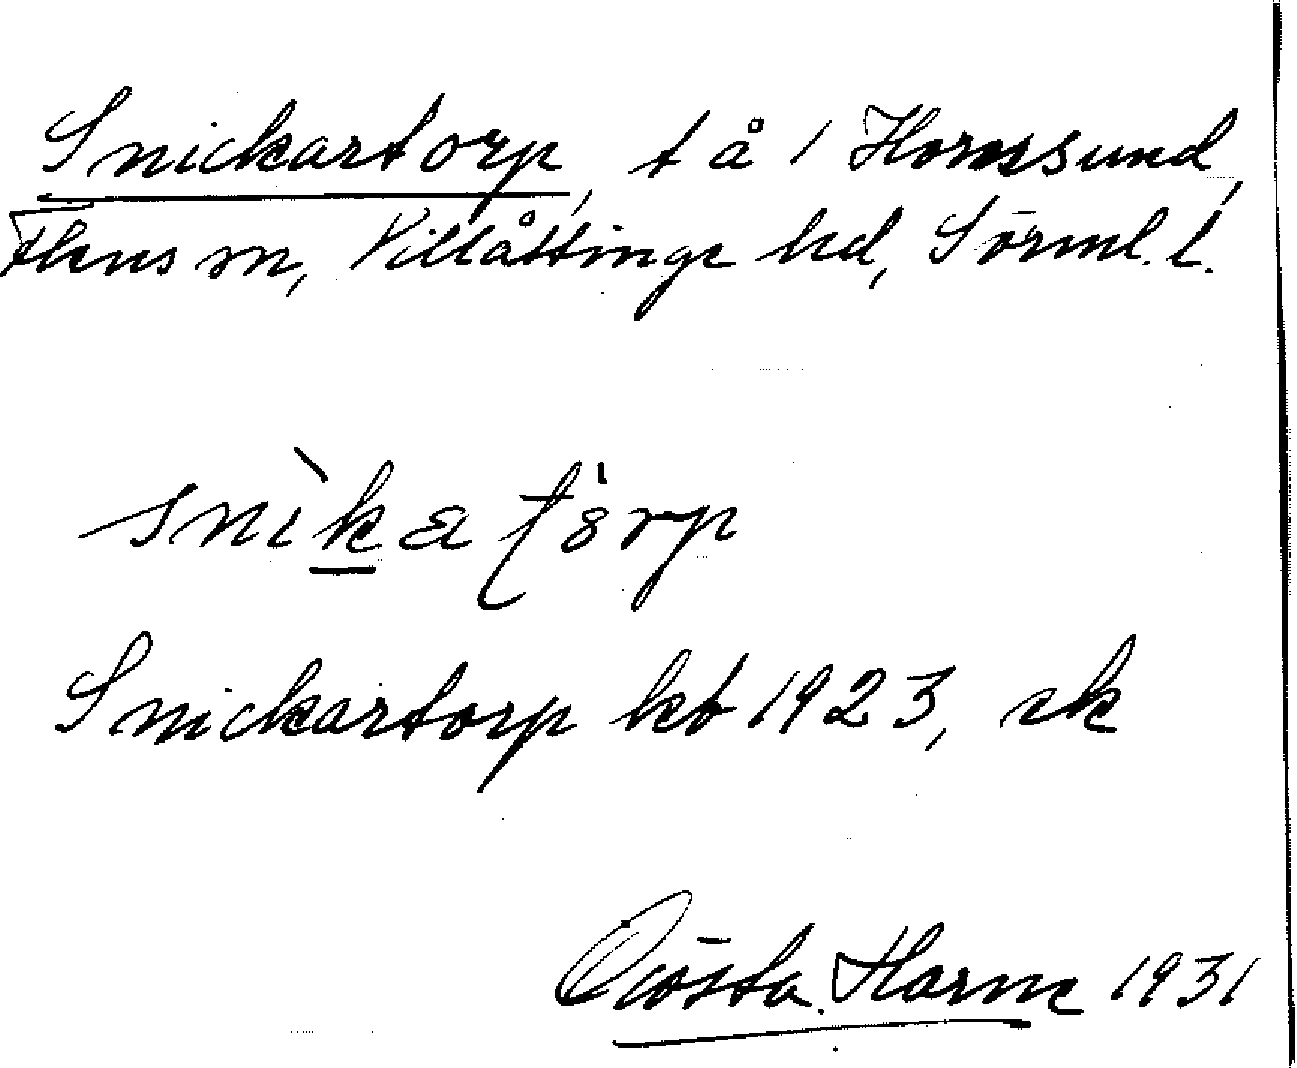 Snickartorp, t å 1 Hornssund,
Flens sn, Villåttinge hd, Sörml. l.
snìka tòrp
Snickartorp kb 1923, sk
Gösta Harne 1931